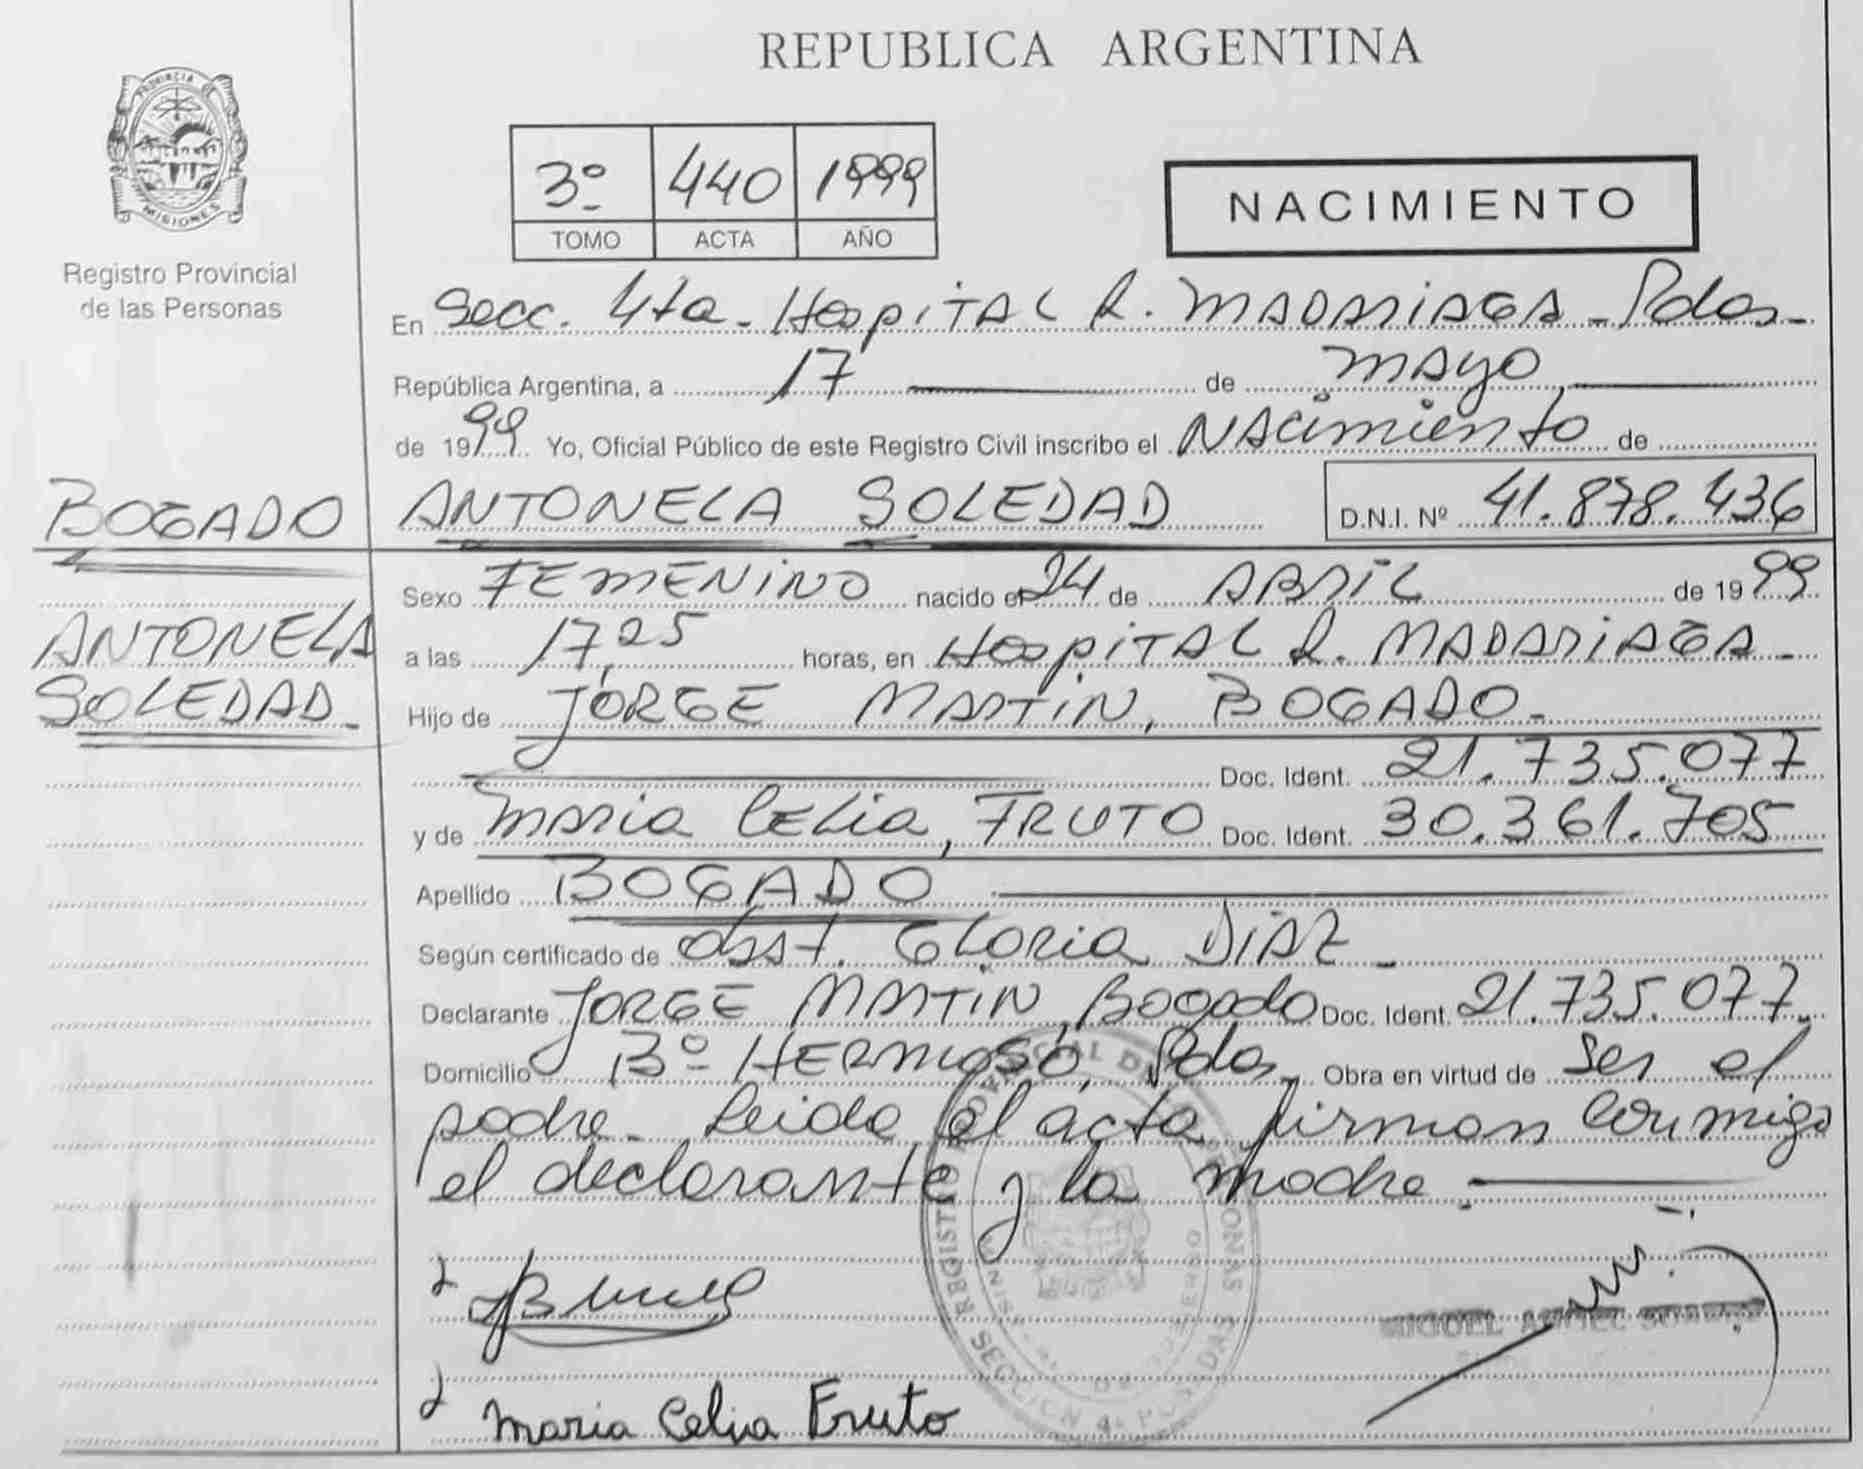 REPUBLICA ARGENTINA
PROVINCIA DE
MISIONES
Registro Provincial
de las Personas
3º 440 1999
TOMO ACTA AÑO
NACIMIENTO
En Secc. 4ta - HospiTAL R. MADARIAGA - Pdas -
República Argentina, a 17 de mAyo
de 1999 Yo, Oficial Público de este Registro Civil inscribo el NAcimiento de
BOGADO
ANTONELA SOLEDAD D.N.I. Nº 41.878.436
ANTONELA
SOLEDAD
Sexo FEMENINO nacido el 24 de ABRIL de 1999
a las 17,25 horas, en HospiTAL R. MADARIAGA -
Hijo de JORGE MARTIN, BOGADO -
Doc. Ident. 21.735.077
y de MARIA CELia, FRUTO Doc. Ident. 30.361.705
Apellido BOGADO
Según certificado de Obst. GLORIA DIAZ -
Declarante JORGE MARTIN, Bogado Doc. Ident. 21.735.077
Domicilio Bº HERMOSO, Pdas, Obra en virtud de ser el
padre - Leida el acta firman conmigo
el declarante y la madre
REGISTRO PROVINCIAL DE LAS PERSONAS
SECCION 4ª POSADAS
MIGUEL ANGEL
Maria Celia Fruto